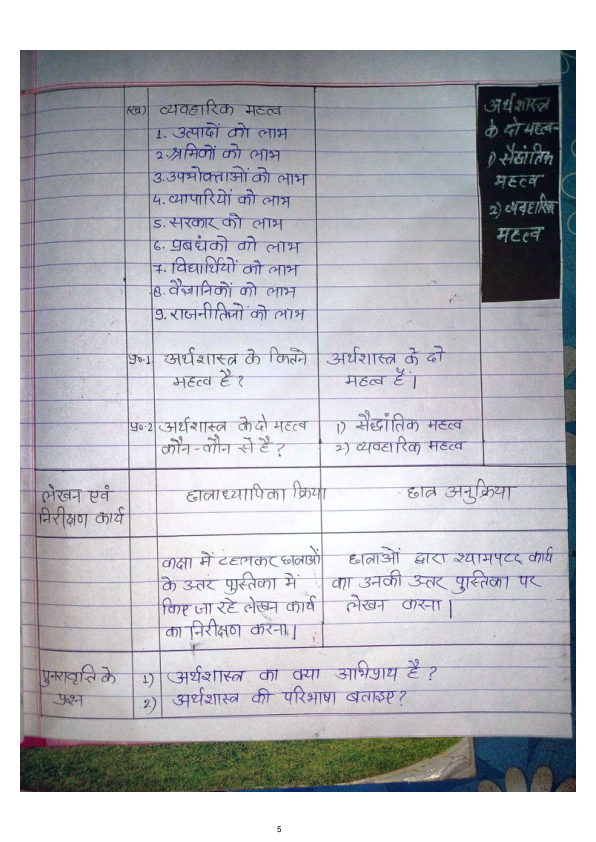 (ख) व्यवहारिक महत्व
1. उत्पादों को लाभ
2. श्रमिकों को लाभ
3. उपभोक्ताओं को लाभ
4. व्यापारियों को लाभ
5. सरकार को लाभ
6. प्रबंधको को लाभ
7. विद्यार्थियों को लाभ
8. वैज्ञानिकों को लाभ
9. राजनीतिज्ञों को लाभ
अर्थशास्त्र
के दो महत्व-
1) सैद्धांतिक
महत्व
2) व्यवहारिक
महत्व
प्र०-1 अर्थशास्त्र के कितने
महत्व है ?
अर्थशास्त्र के दो
महत्व हैं।
प्र०-2 अर्थशास्त्र के दो महत्व
कौन-कौन से है ?
1) सैद्धांतिक महत्व
2) व्यवहारिक महत्व
लेखन एवं
निरीक्षण कार्य
छात्राध्यापिका क्रिया
छात्र अनुक्रिया
कक्षा में टहलकर छात्राओं
के उत्तर पुस्तिका में
किए जा रहे लेखन कार्य
का निरीक्षण करना।
छात्राओं द्वारा श्यामपट्ट कार्य
का उनकी उत्तर पुस्तिका पर
लेखन करना।
पुनरावृति के
प्रश्न
1) अर्थशास्त्र का क्या अभिप्राय है ?
2) अर्थशास्त्र की परिभाषा बताइए ?
5